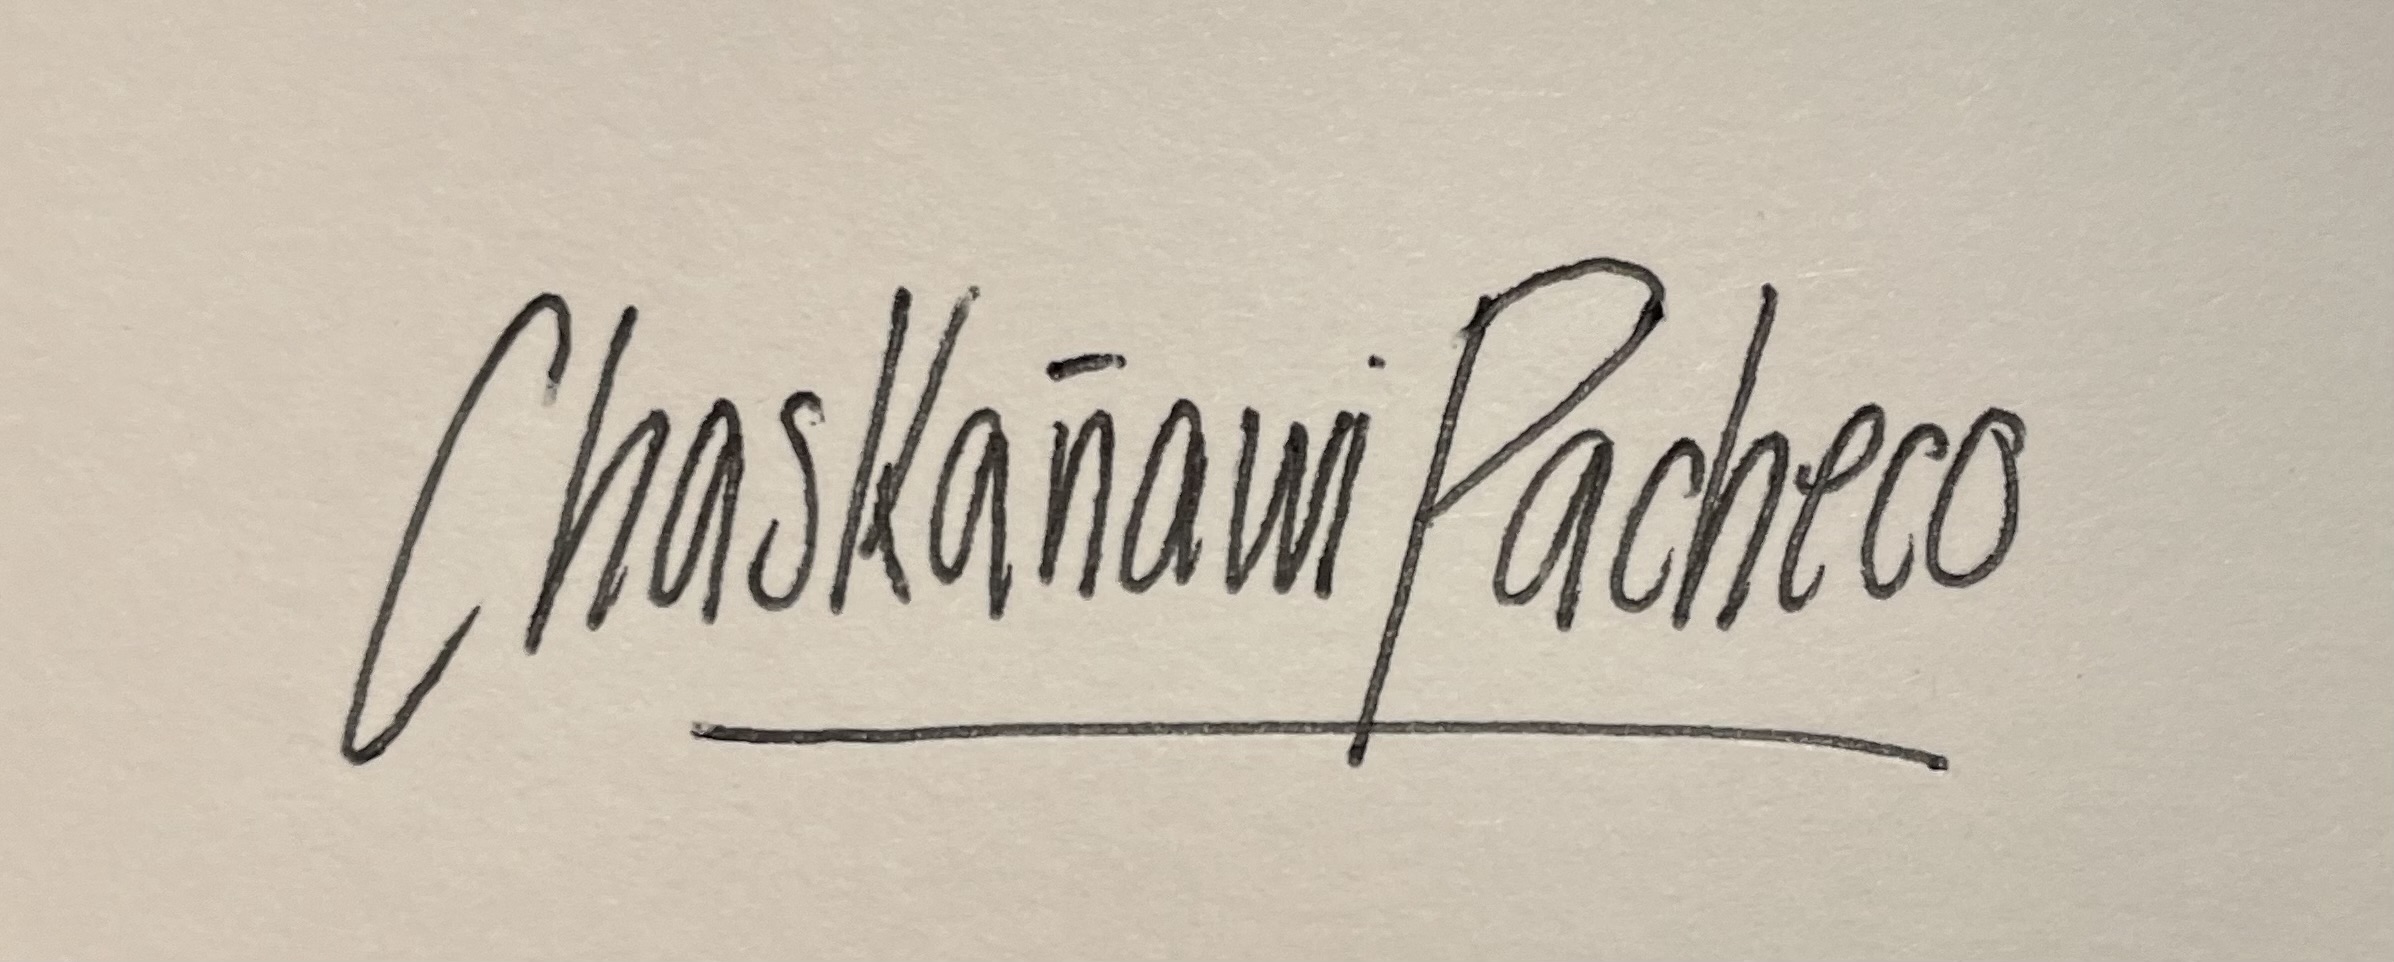 Chaskañawi Pacheco